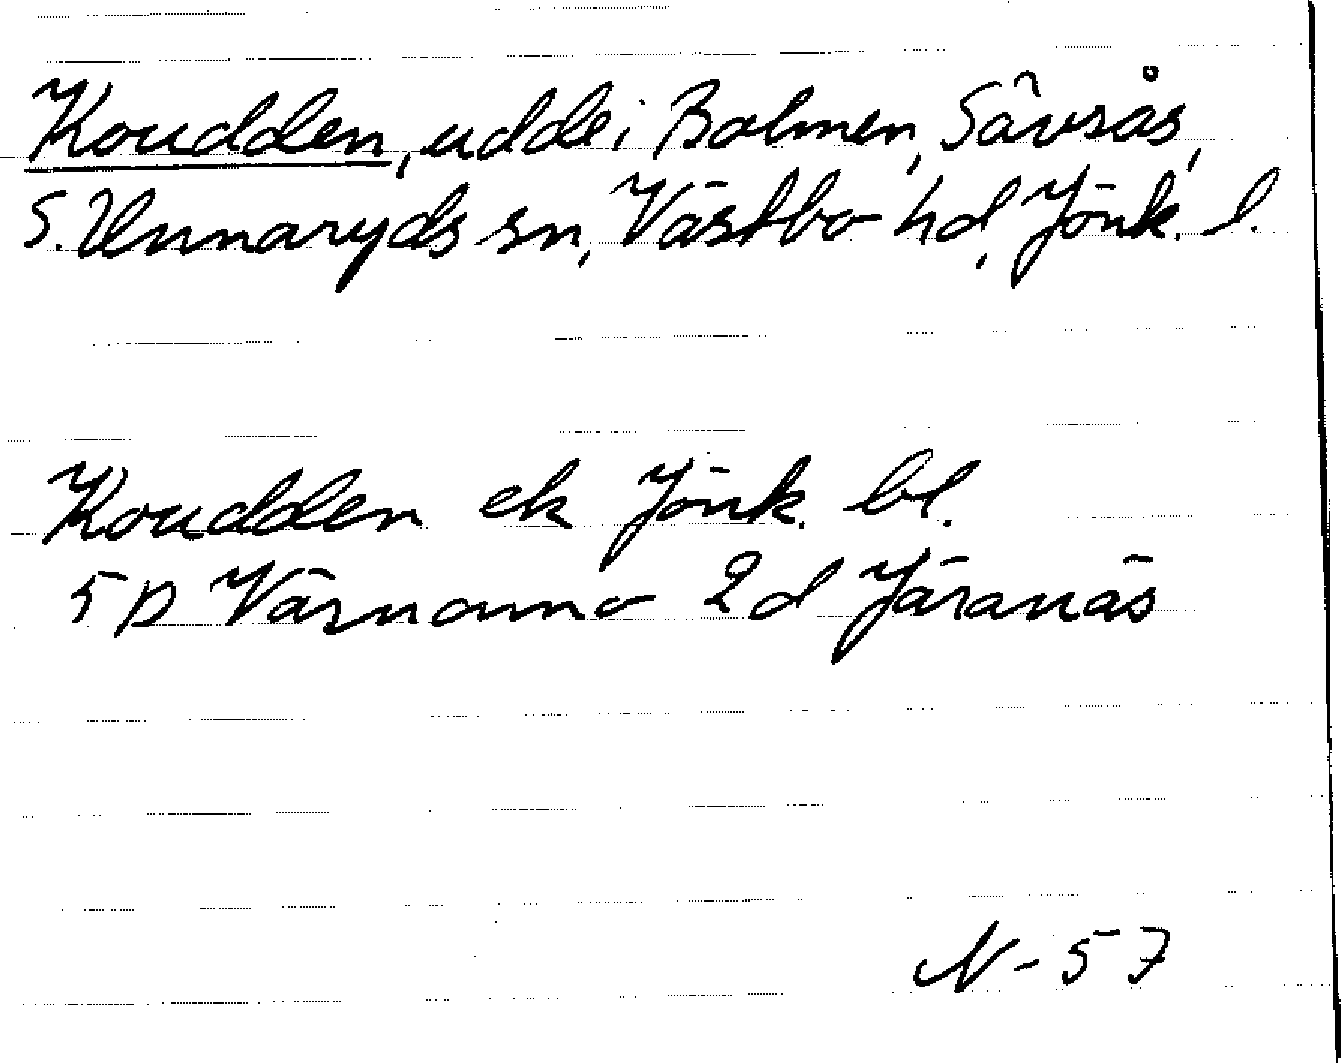 Koudden, udde i Bolmen, Sävsås,
S. Unnaryds sn, Västbo hd, Jönk. l.
Koudden ek Jönk. bl.
5 D Värnamo 2d Järanäs
N-57